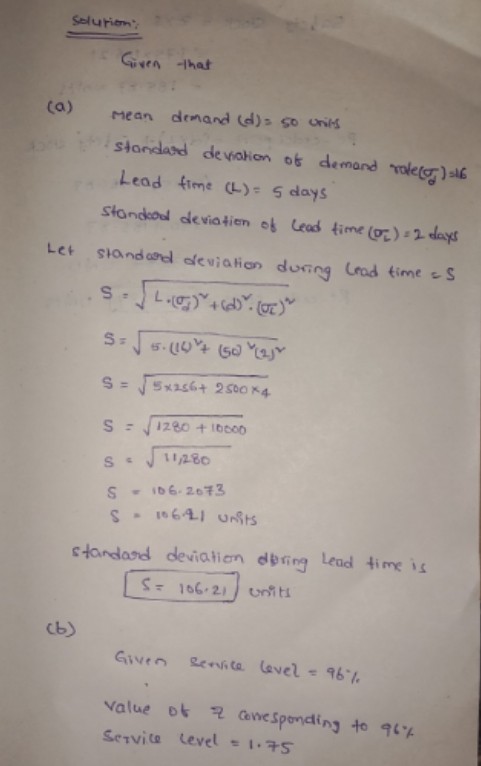 Solution:
Given that
(a)
Mean demand (d) = 50 units
standard deviation of demand rate (σd) = 16
Lead time (L) = 5 days
standard deviation of lead time (σL) = 2 days
Let standard deviation during lead time = S
S = √L.(σd)² + (d)².(σL)²
S = √5.(16)² + (50)²(2)²
S = √5×256 + 2500×4
S = √1280 + 10000
S = √11,280
S = 106.2073
S = 106.21 units
standard deviation during lead time is
S = 106.21 units
(b)
Given service level = 96%
value of z corresponding to 96%
Service level = 1.75